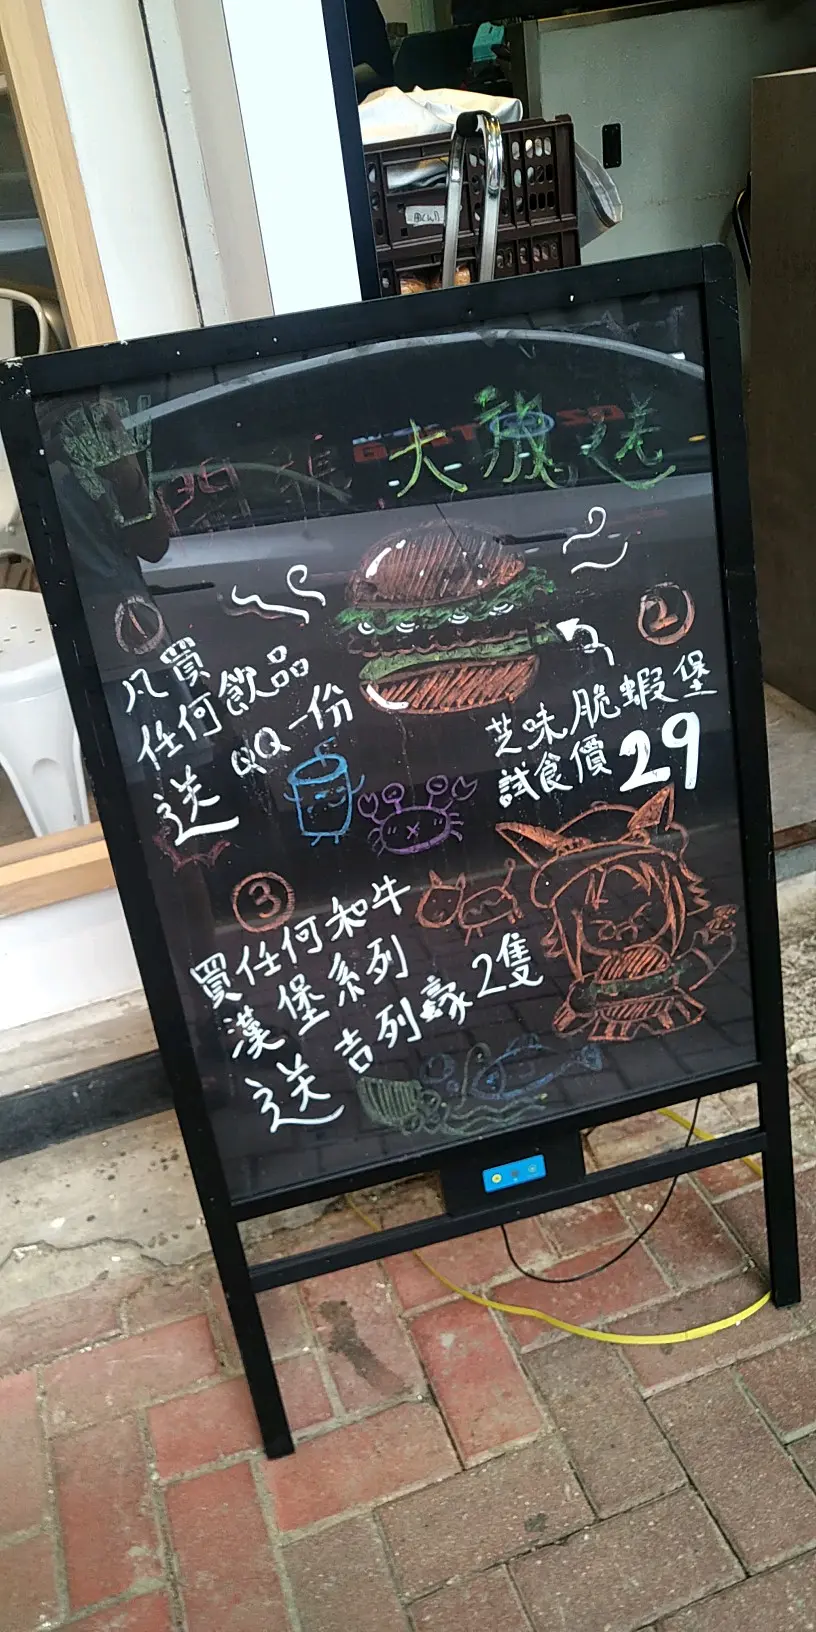 開張大放送
①
凡買
任何飲品
送QQ一份
②
芝味脆蝦堡
試食價29
③
買任何和牛
漢堡系列
送吉列蠔2隻